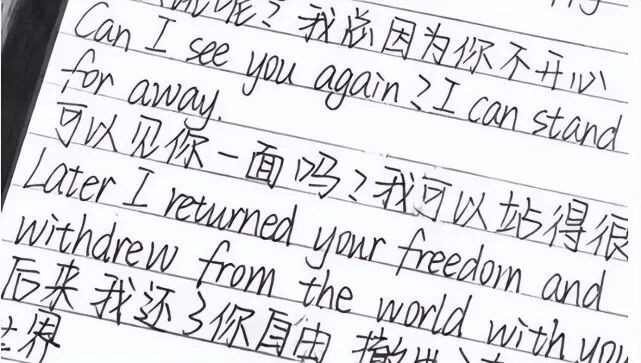 呢？我总因为你不开心
Can I see you again? I can stand
for away.
可以见你一面吗？我可以站得很
Later I returned your freedom and
withdrew from the world with you
后来我还了你自由 撤
世界